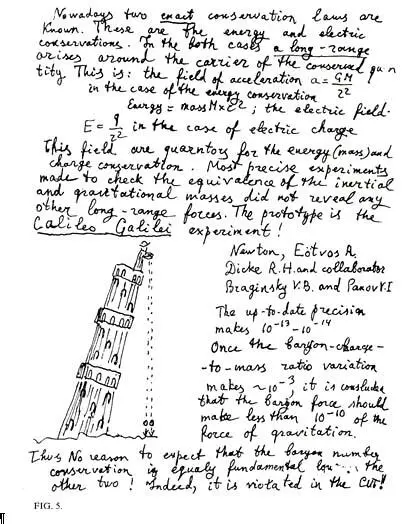 Nowadays two exact conservation laws are
known. These are the energy and electric
conservations. In the both cases a long-range
arises around the carrier of the conserved quan
tity. This is: the field of acceleration a = GM/r²
in the case of the energy conservation
Energy = mass M×c²; the electric field
E = q/r² in the case of electric charge
This field are quarntors for the energy (mass) and
charge conservation. Most precise experiments
made to check the equivalence of the inertial
and gravitational masses did not reveal any
other long-range forces. The prototype is the
Galileo Galilei experiment!
Newton, Eötvos R.
Dicke R.H. and collaborator
Braginsky V.B. and Panov V.I
The up-to-date precision
makes 10⁻¹³ – 10⁻¹⁴
Once the baryon-charge-
-to-mass ratio variation
makes ~10⁻³, it is concluded
that the baryon force should
make less than 10⁻¹⁰ of the
force of gravitation.
Thus No reason to expect that the baryon number
conservation is equaly fundamental the
other two! Indeed, it is violated in the GUT!
FIG. 5.